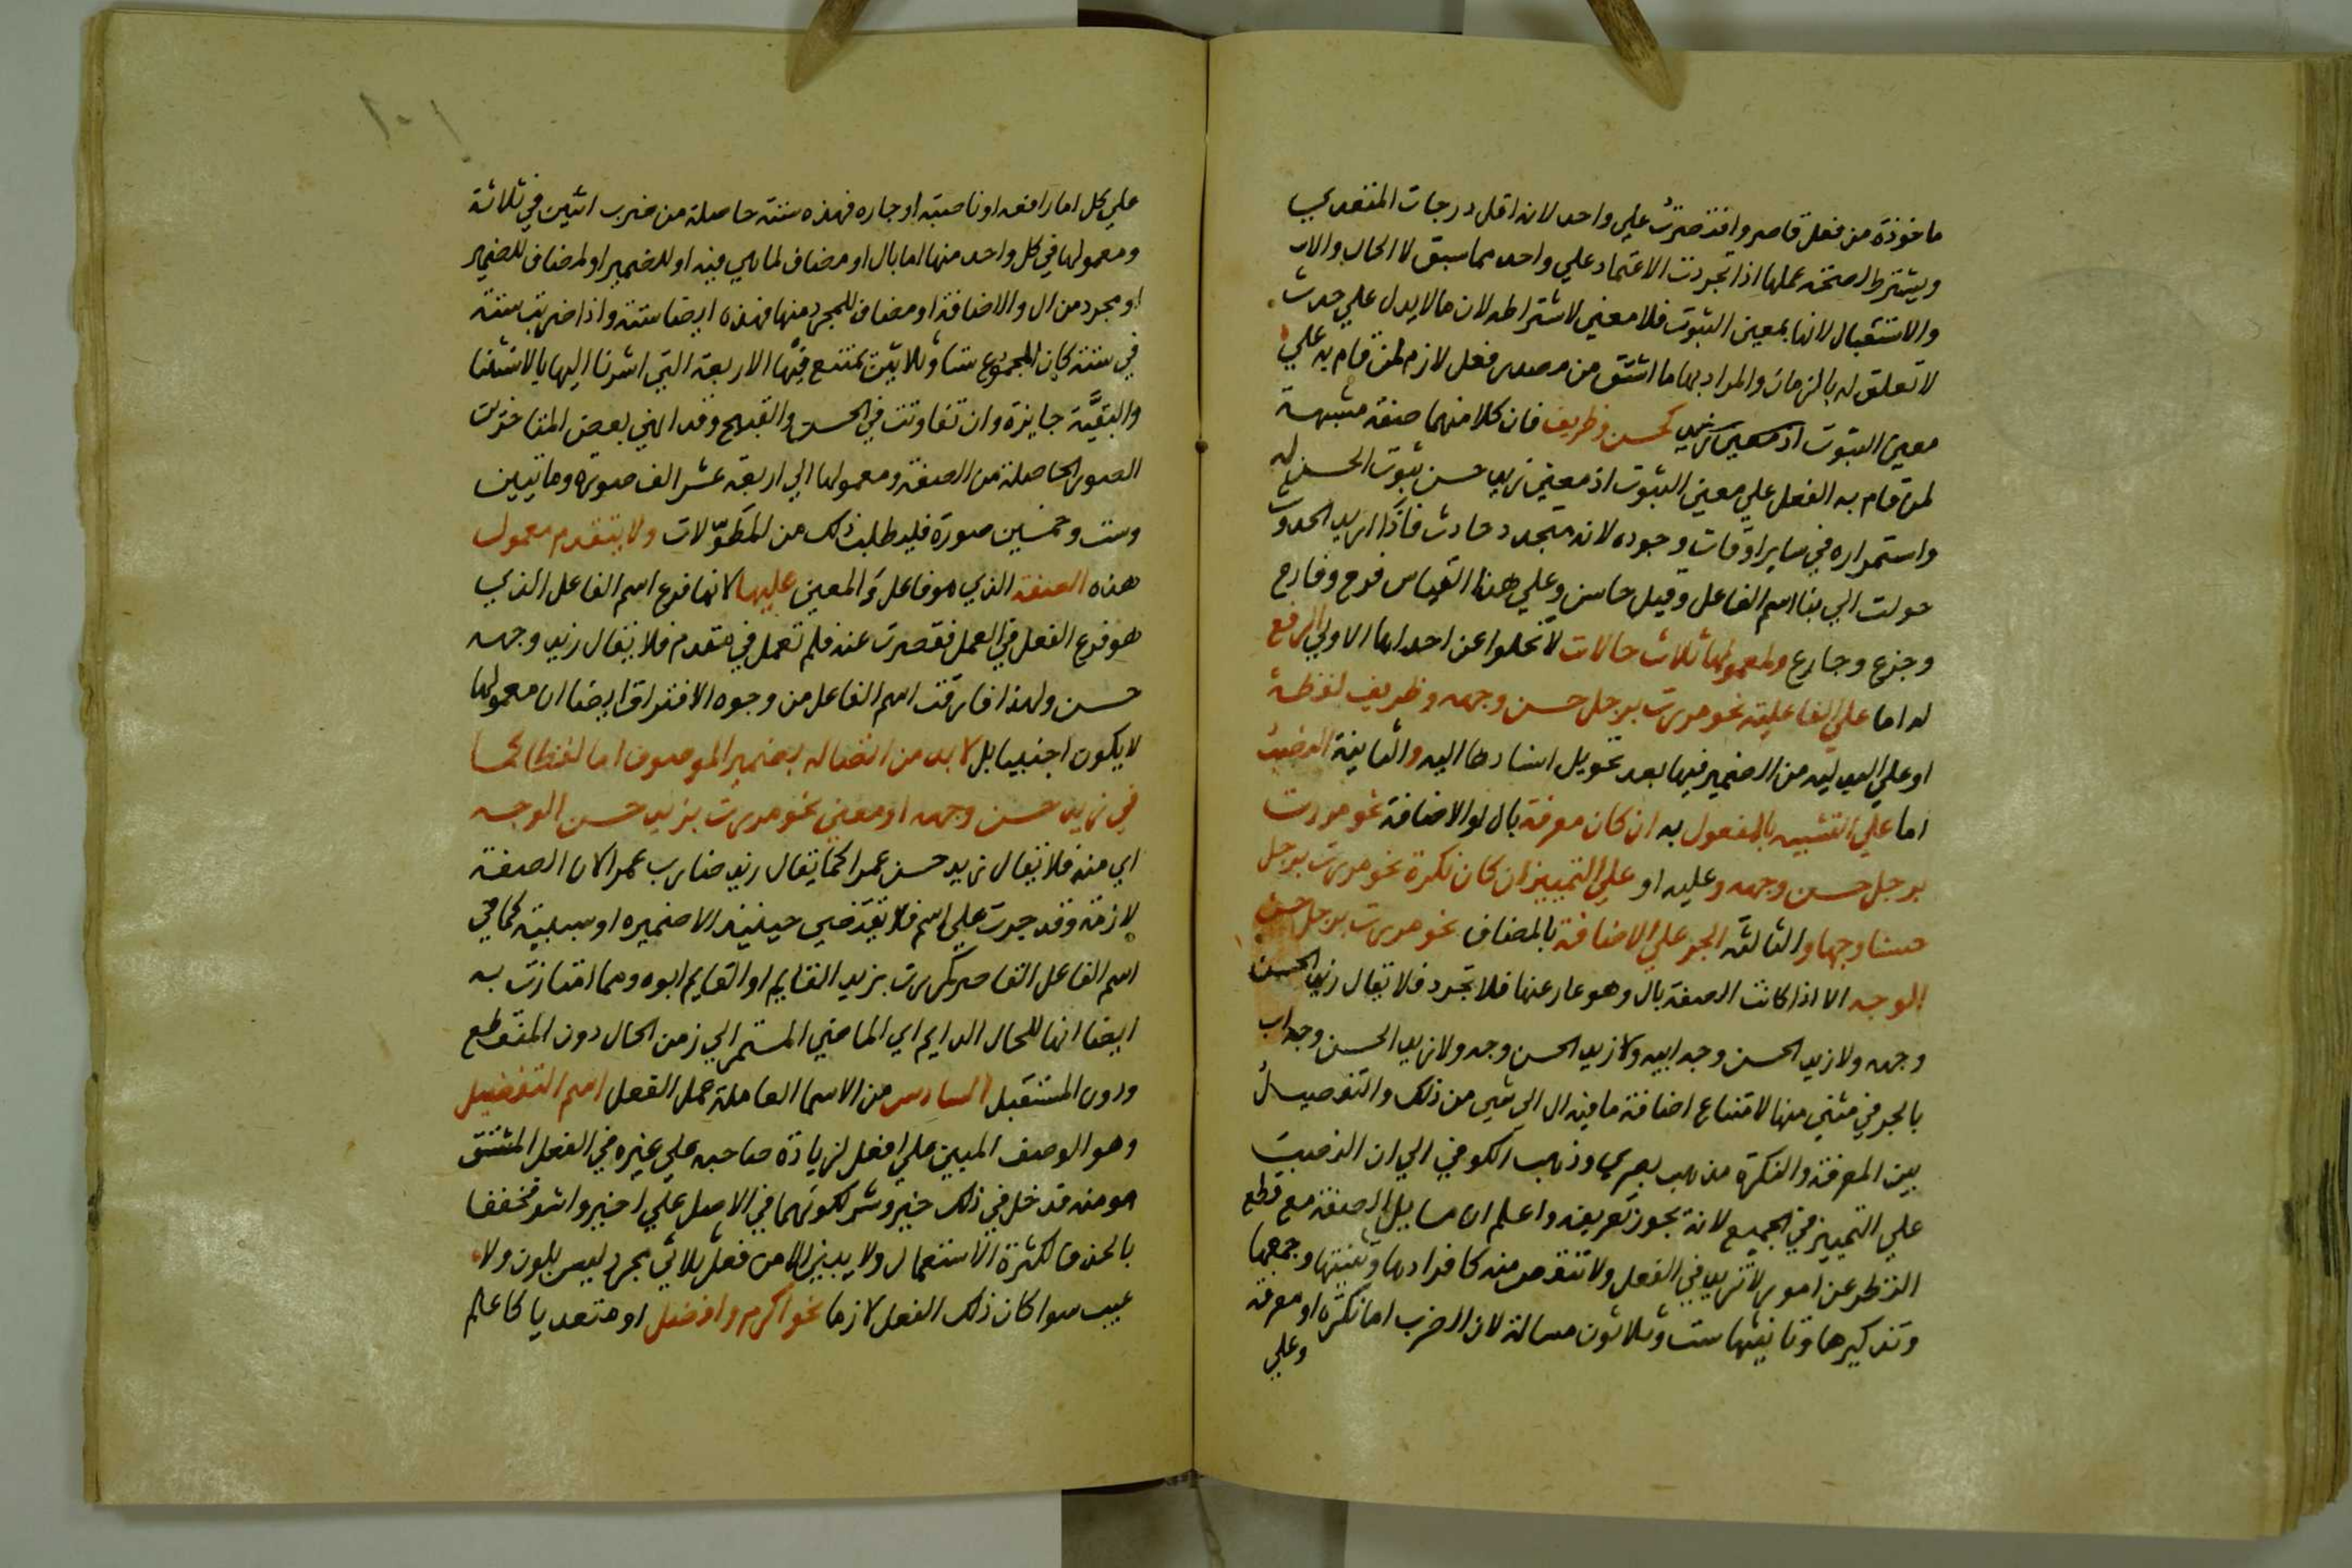 ماخوذة من فعل قاصر واقتصرت علي واحد لانه اقل درجات المتعدي
ويشترط لصحة عملها اذا تجردت الاعتماد علي واحد مما سبق لا الحال والا
والاستقبال لانها بمعني الثبوت فلا معني لاشتراطه لان ما لا يدل علي حدث
لا تعلق له بالزمان والمراد بها ما اشتق من مصدر فعل لازم لمن قام به علي
معني الثبوت كحسن وظريف فان كلا منهما صفة مشبهة
لمن قام به الفعل علي معني الثبوت اذ معني زيد حسن ثبوت الحسن له
واستمراره في ساير اوقات وجوده لانه متجدد حادث فاذا اريد الحدوث
حولت الي بنا اسم الفاعل وقيل حاسن وعلي هذا القياس فرح وفارح
وجزع وجازع ولمعمولها ثلاث حالات لا تخلوا عن احداها الاولي الرفع
له اما علي الفاعلية نحو مررت برجل حسن وجهه وظريف لفظه
او علي البدلية من الضمير فيها بعد تحويل اسنادها اليه والثانية النصب
اما علي التشبيه بالمفعول به ان كان معرفة بال او الاضافة نحو مررت
برجل حسن وجهه وعليه او علي التمييز ان كان نكرة نحو مررت برجل
حسنا وجها والثالثة الجر علي الاضافة بالمضاف نحو مررت برجل حسن
الوجه الا اذا كانت الصفة بال وهو عار عنها فلا تجرد فلا تقال زيد الحسن
وجهه ولا زيد الحسن وجه ابيه ولا زيد الحسن وجه ولا زيد الحسن وجه اب
بالجر في شي منها لامتناع اضافة ما فيه ال الي شي من ذلك والتفصيل
بين المعرفة والنكرة مذهب بصري وذهب الكوفي الي ان النصب
علي التمييز في الجميع لانه يجوز تعريفه واعلم ان مسايل الصفة مع قطع
النظر عن امور لا تزيد في الفعل ولا تنقص منه كافرادها وتثنيتها وجمعها
وتذكيرها وتانيثها ست وثلاثون مسالة لان الضرب اما نكرة او معرفة
وعلي
علي كل اما رافعه او ناصبته او جاره فهذه ستة حاصلة من ضرب اثنين في ثلاثة
ومعمولها في كل واحد منها اما بال او مضاف لما هي فيه او للضمير او لمضاف للضمير
او مجرد من ال والاضافة او مضاف للمجرد منها فهذه ايضا ستة واذا ضربت ستة
في ستة كان المجموع ستا وثلاثين تمتنع منها الاربعة التي اشرنا اليها بالاستثنا
والبقية جايزة وان تفاوتت في الحسن والقبح وقد انهي بعض المتاخرين
الصور الحاصلة من الصفة ومعمولها الي اربعة عشر الف صورة وماتين
وست وخمسين صورة فليطلب ذلك من المطولات ولا يتقدم معمول
هذه الصفة الذي هو فاعل في المعني عليها لانها فرع اسم الفاعل الذي
هو فرع الفعل في العمل فقصرت عنه فلم تعمل في متقدم فلا يقال زيد وجهه
حسن ولهذا فارقت اسم الفاعل من وجوه الافتراق ايضا ان معمولها
لا يكون اجنبيا بل لا بد من اتصاله بضمير الموصوف اما لفظا كما
في زيد حسن وجهه او معني نحو مررت بزيد حسن الوجه
اي منه فلا تقال زيد حسن عمرا كما يقال زيد ضارب عمرا لان الصفة
لازمة وقد جرت علي اسم فلا تقتضي حينيذ الا ضميره او سببيه كما في
اسم الفاعل القاصر كمررت بزيد القايم او القايم ابوه ومما امتازت به
ايضا انها للحال الدايم اي الماضي المستمر الي زمن الحال دون المنقطع
ودون المستقبل السادس من الاسما العاملة عمل الفعل اسم التفضيل
وهو الوصف المبني علي افعل لزيادة صاحبه علي غيره في الفعل المشتق
هو منه فدخل في ذلك خير وشر لكونهما في الاصل علي اخير واشر فخففا
بالحذف لكثرة الاستعمال ولا يبني الا من فعل ثلاثي مجرد ليس بلون ولا
عيب سوا كان ذلك الفعل لازما نحو اكرم وافضل او متعديا كاعلم